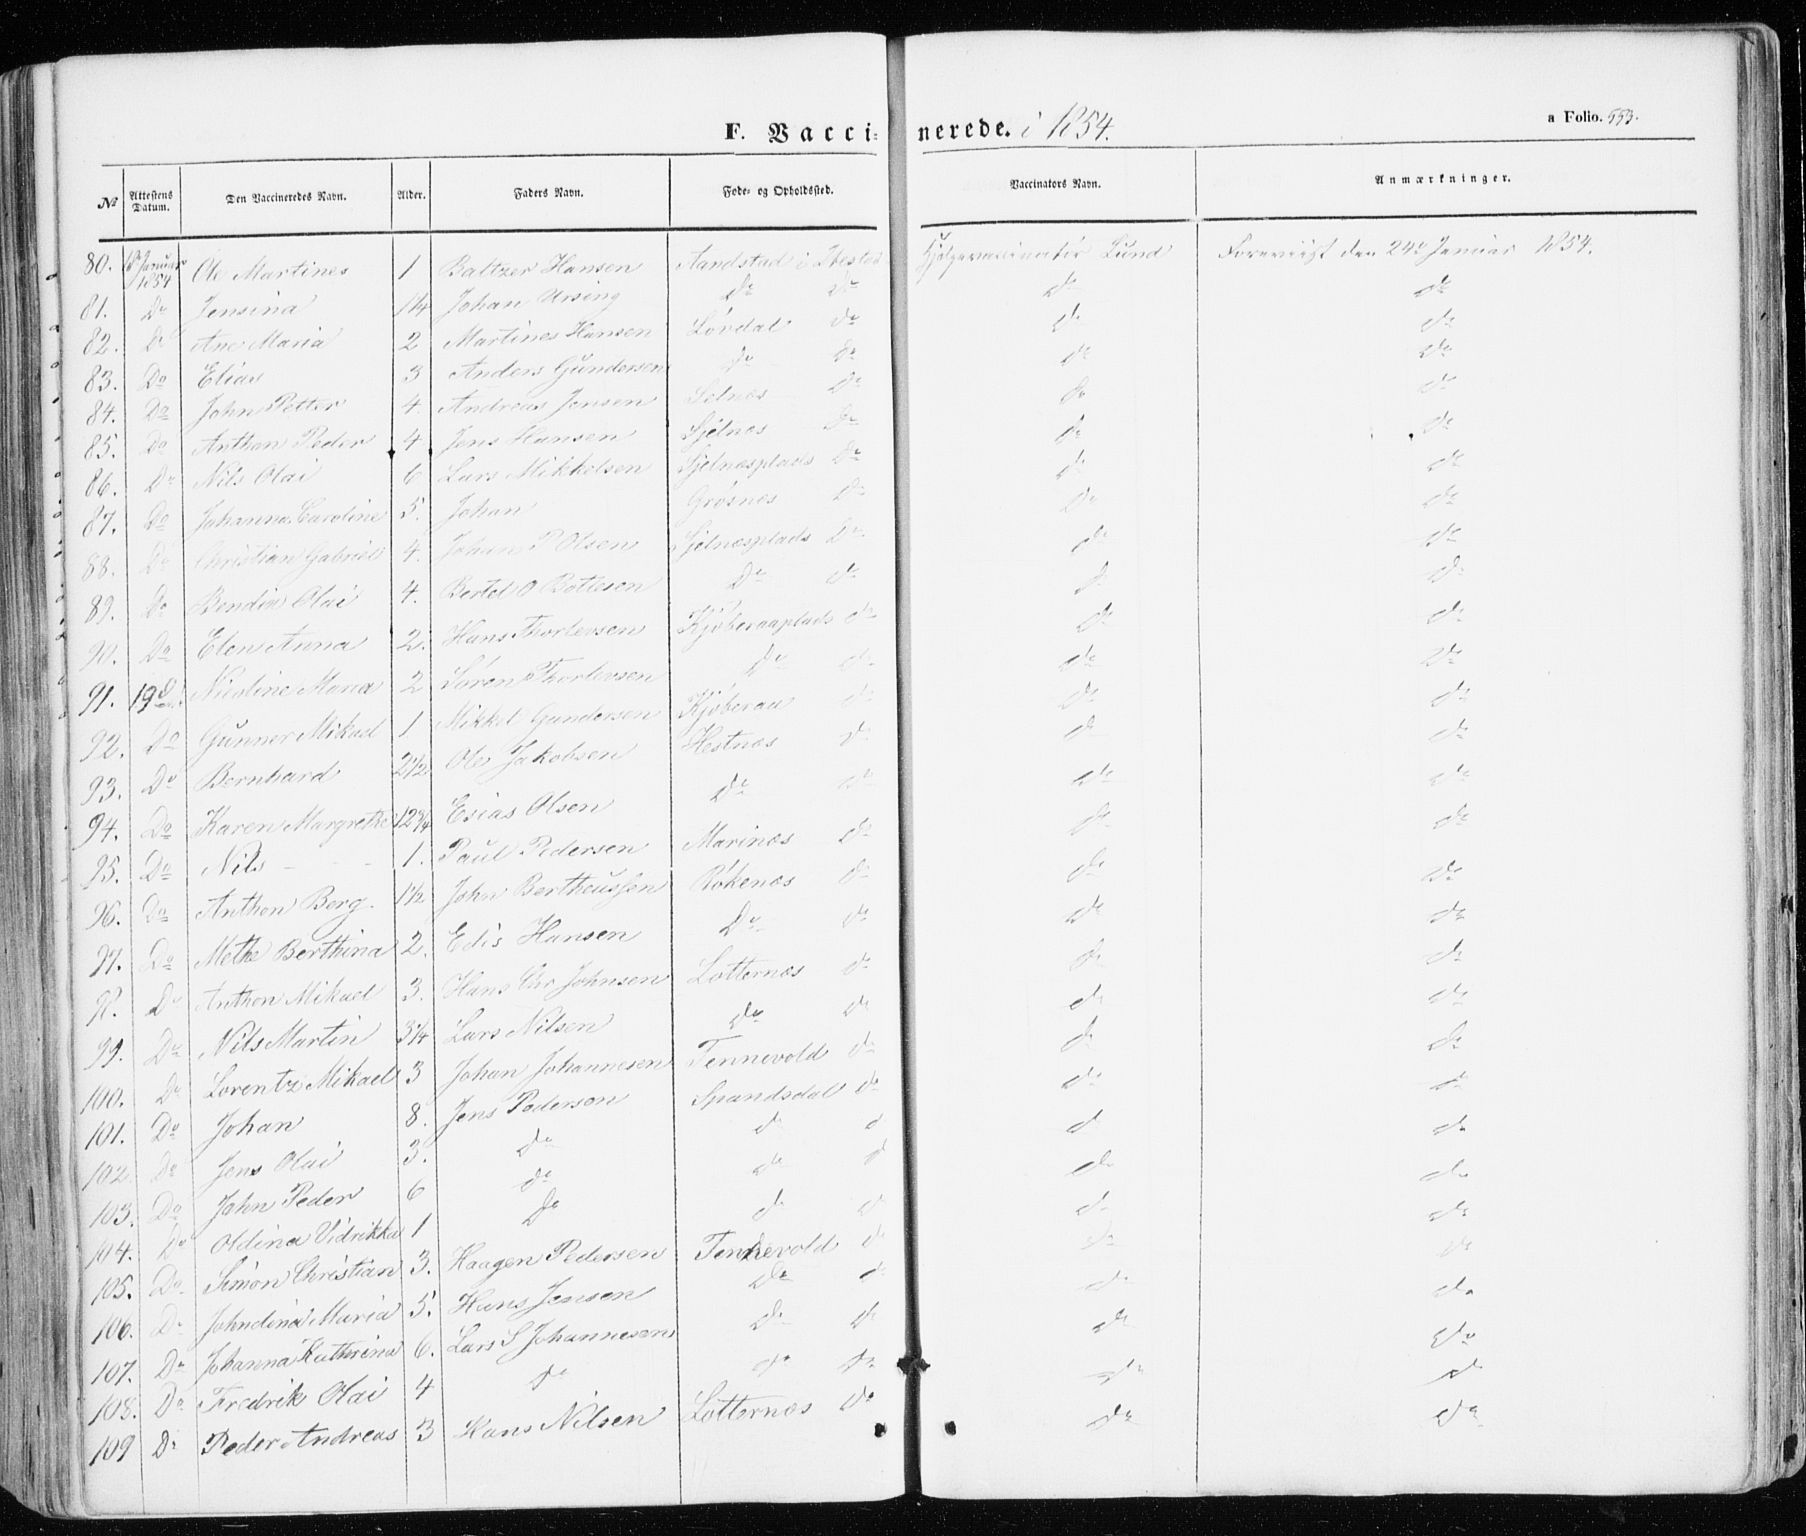 F. Vaccinerede. i 1854.
a Folio. 553.
No Attestens Datum. Den Vaccineredes Navn. Alder. Faders Navn. Føde- og Opholdssted. Vaccinators Navn. Anmærkninger.
80. Januar 1854 Ole Martines 1 Baltzer Hansen Aandstad i Ibestad Hjelpevaccinatør Lund Foreviist den 24de Januar 1854.
81. Do Jensina 1 1/4 Johan Ursing Do Do do do
82. Do Ane Maria 2 Martines Hansen Lørdal do do do
83. Do Elias 3 Anders Gundersen Do do do do
84. Do John Petter 4. Andreas Jensen Selnes do do do
85. Do Anthon Peder 4 Jens Hansen Sjelnes do do do
86. Do Nils Olai 6 Lars Mikkelsen Sjelnesplads do do do
87. Do Johanna Caroline 5. Johan Grøsnes do do do
88. Do Christian Gabriel 4. Johan P Olsen Sjelnesplads do do do
89. Do Bendix Olai 4. Bertel O Bottesen Do do do do
90. Do Elen Anna 2. Hans Thorlevsen Kjøberaaplads do do do
91. 19de Nicoline Maria 2 Søren Thorlevsen Do do do do
92. Do Gunner Mikael 1 Mikkel Gundersen Kjøberaa do do do
93. Do Bernhard 2 1/2 Ole Jakobsen Hestnæs do do do
94. Do Karen Margrethe 12 3/4 Esias Olsen Do do do do
95. Do Nils - - 1. Paul Pedersen Marinæs do do do
96. Do Anthon Berg 1 1/2 John Bertheussen Røkenæs do do do
97. Do Methe Berthina 2. Edis Hansen Do do do do
98. Do Anthon Mikael 3. Hans Chr Johnsen Lotternæs do do do
99. Do Nils Martin 3 1/4 Lars Nilsen Do do do do
100. Do Lorentz Mikael 3 Johan Johannesen Tennevold do do do
101. Do Johan 8. Jens Pedersen Spandsdal do do do
102. Do Jens Olai 3. Do do do do do
103. Do John Peder 6 Do do do do do
104. Do Oldina Vidrikka 1 Do do do do do
105. Do Simon Christian 3. Haagen Pedersen Tennevold do do do
106. Do Johndina Maria 5. Hans Jensen Do do do do
107. Do Johanna Kathrina 6. Lars S Johannesen do do do do
108. Do Fredrik Olai 4 Do do do do do
109 Do Peder Andreas 3 Hans Nilsen Lotternæs do do do